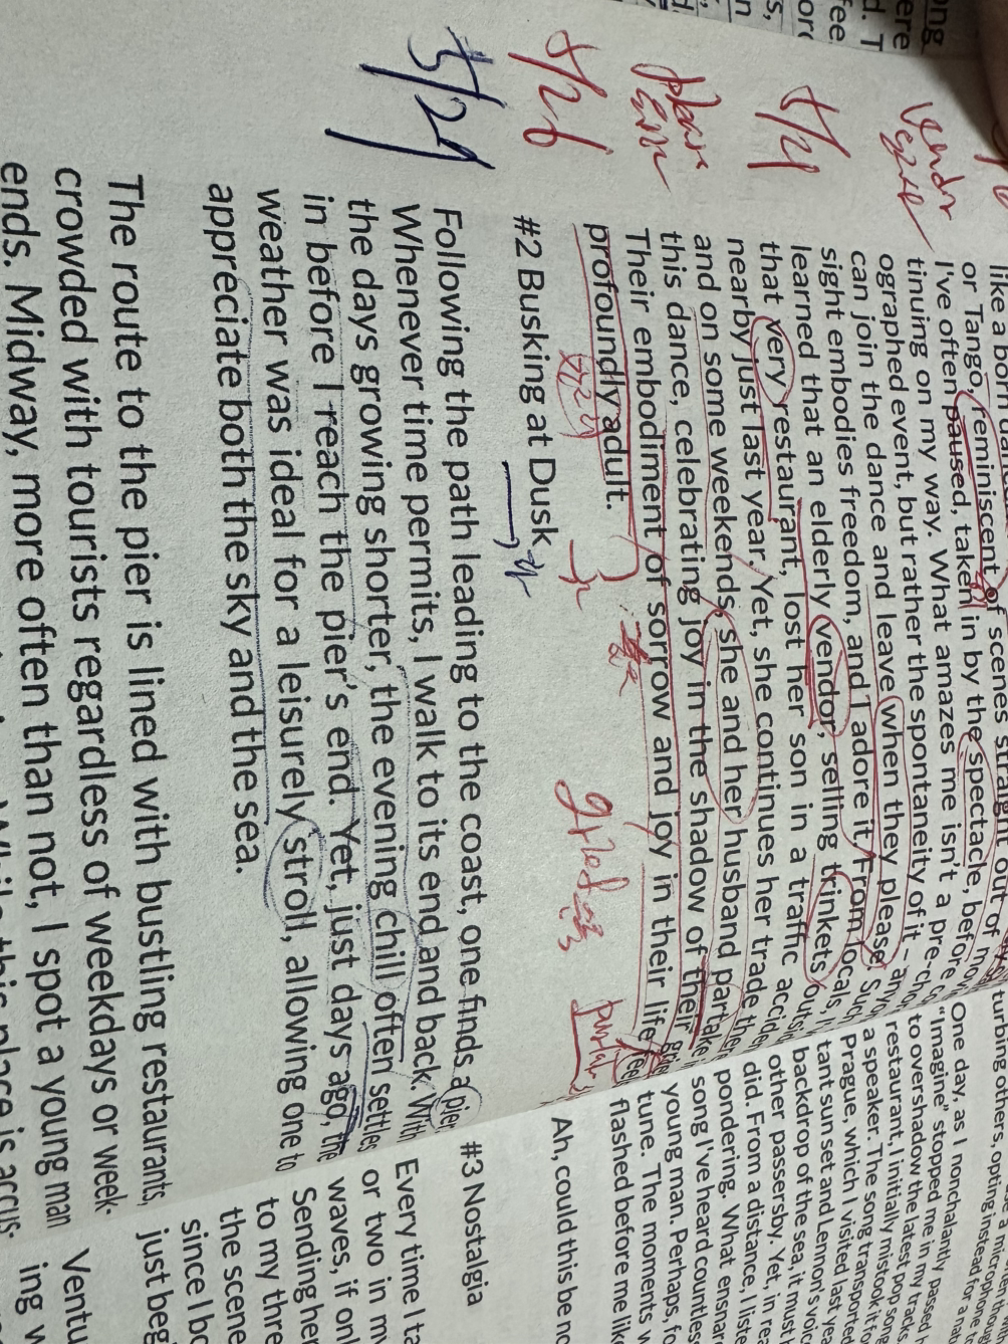 ong
ere
d. T
fee
vendor
5/21
please
5/26
5/29
or Tango, reminiscent of scenes straight out of
I've often paused, taken in by the spectacle, before
tinuing on my way. What amazes me isn't a pre-cho
ographed event, but rather the spontaneity of it –
can join the dance and leave when they please. Such
sight embodies freedom, and I adore it. From locals, I
learned that an elderly vendor, selling trinkets outsid
that very restaurant, lost her son in a traffic accide
nearby just last year. Yet, she continues her trade there
and on some weekends, she and her husband partake
this dance, celebrating joy in the shadow of their
Their embodiment of sorrow and joy in their life
profoundly adult.
#2 Busking at Dusk
Following the path leading to the coast, one finds a pier.
Whenever time permits, I walk to its end and back. With
the days growing shorter, the evening chill often settles
in before I reach the pier's end. Yet, just days ago, the
weather was ideal for a leisurely stroll, allowing one to
appreciate both the sky and the sea.
The route to the pier is lined with bustling restaurants,
crowded with tourists regardless of weekdays or week-
ends. Midway, more often than not, I spot a young man
turbing others, opting instead for a
One day, as I nonchalantly passed
"Imagine" stopped me in my track
to overshadow the latest pop song
restaurant, I initially mistook it fo
a speaker. The song transported
Prague, which I visited last yea
tant sun set and Lennon's voic
backdrop of the sea, it must
other passersby. Yet, in rea
did. From a distance, I liste
pondering. What ensnar
song I've heard countless
young man. Perhaps, fo
tune. The moments w
flashed before me lik
Ah, could this be no
#3 Nostalgia
Every time I ta
or two in my
waves, if onl
Sending her
to my thre
the scene
since I bo
just beg
Ventu
ing w